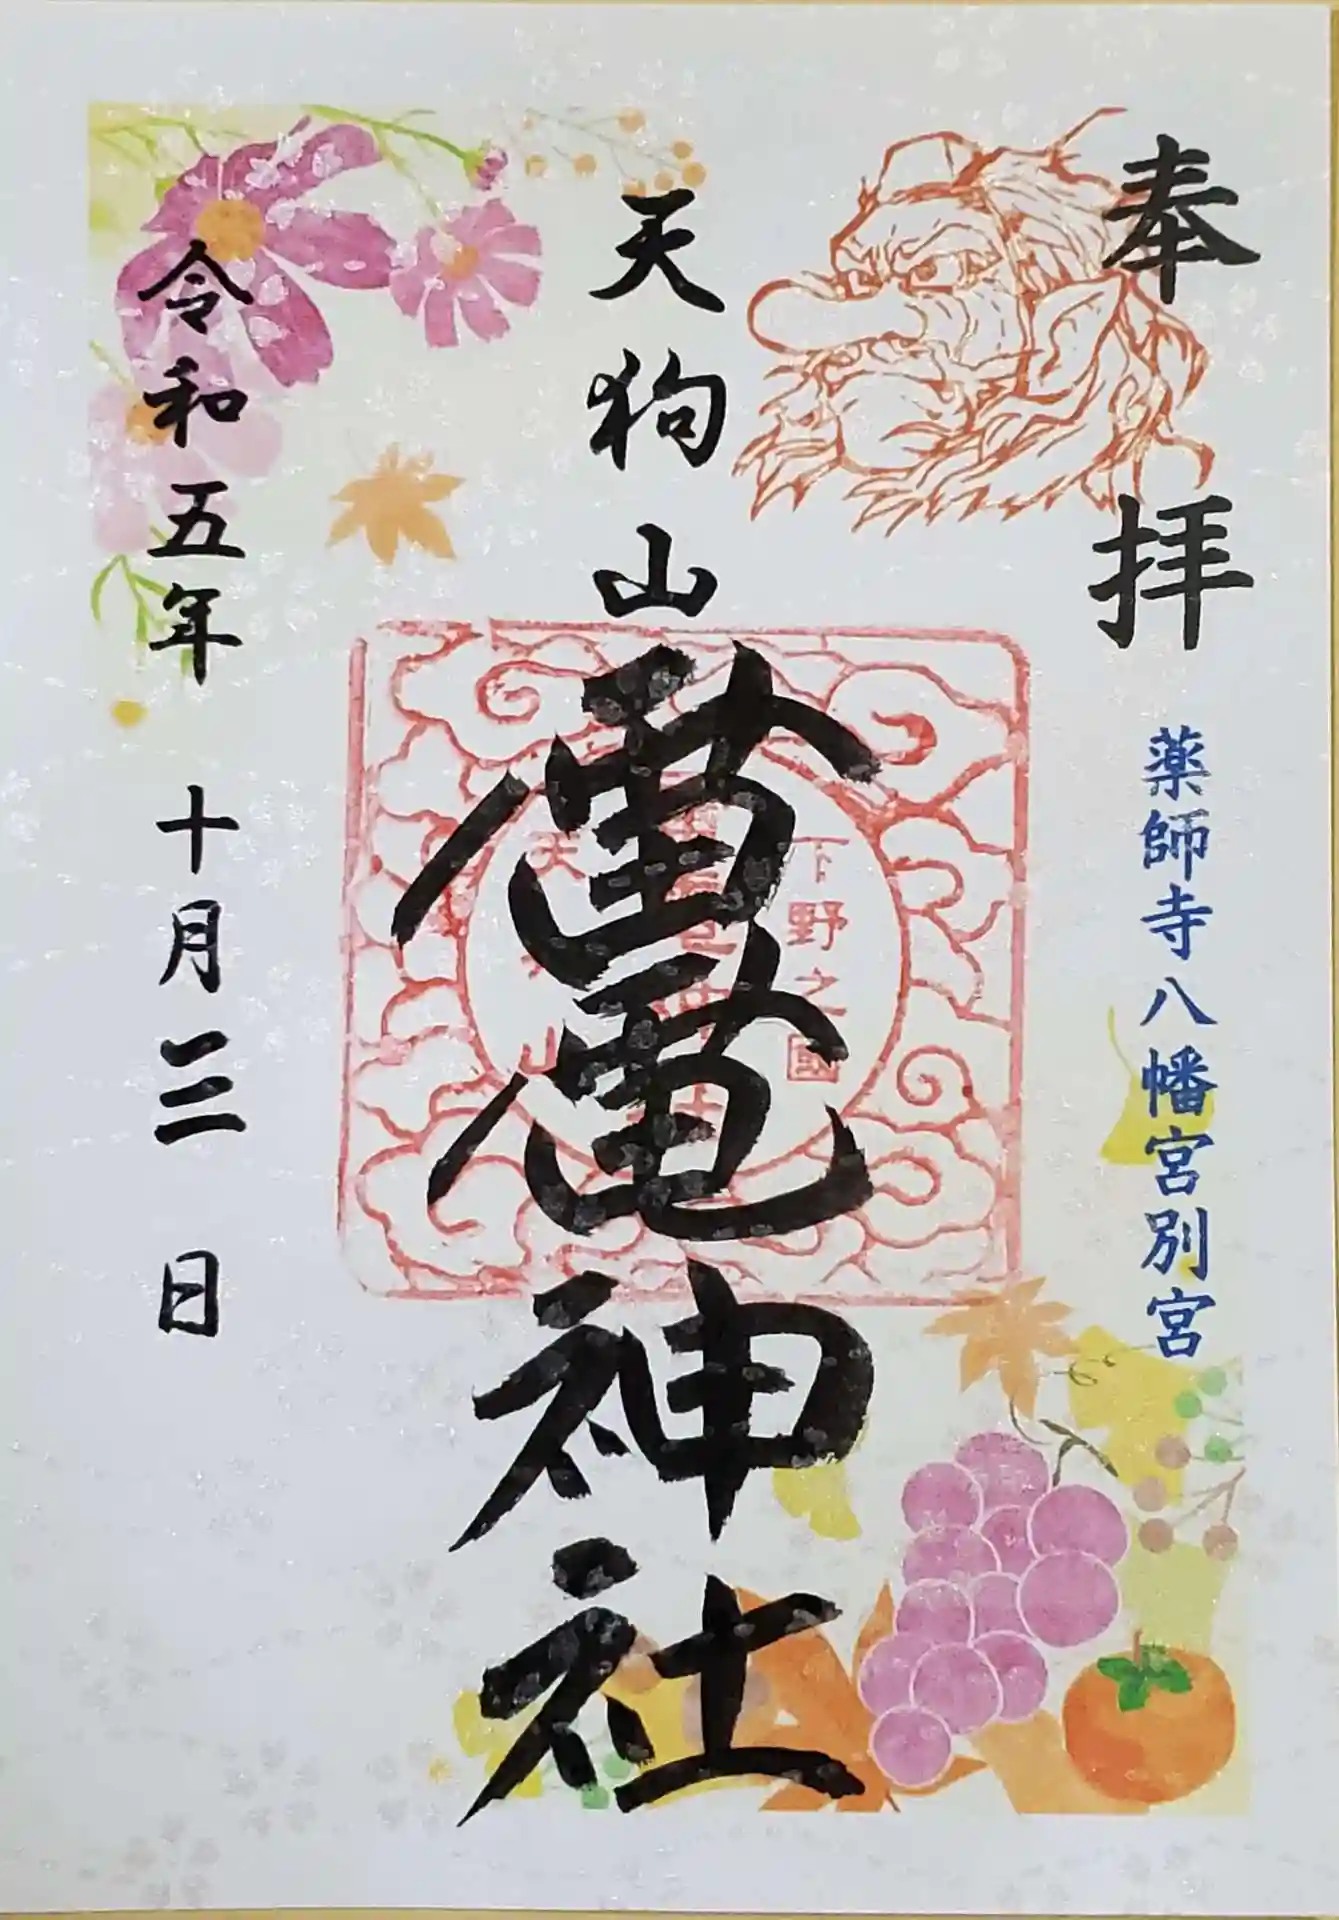 奉拝
薬師寺八幡宮別宮
天狗山
雷電神社
下野之國
令和五年 十月三日